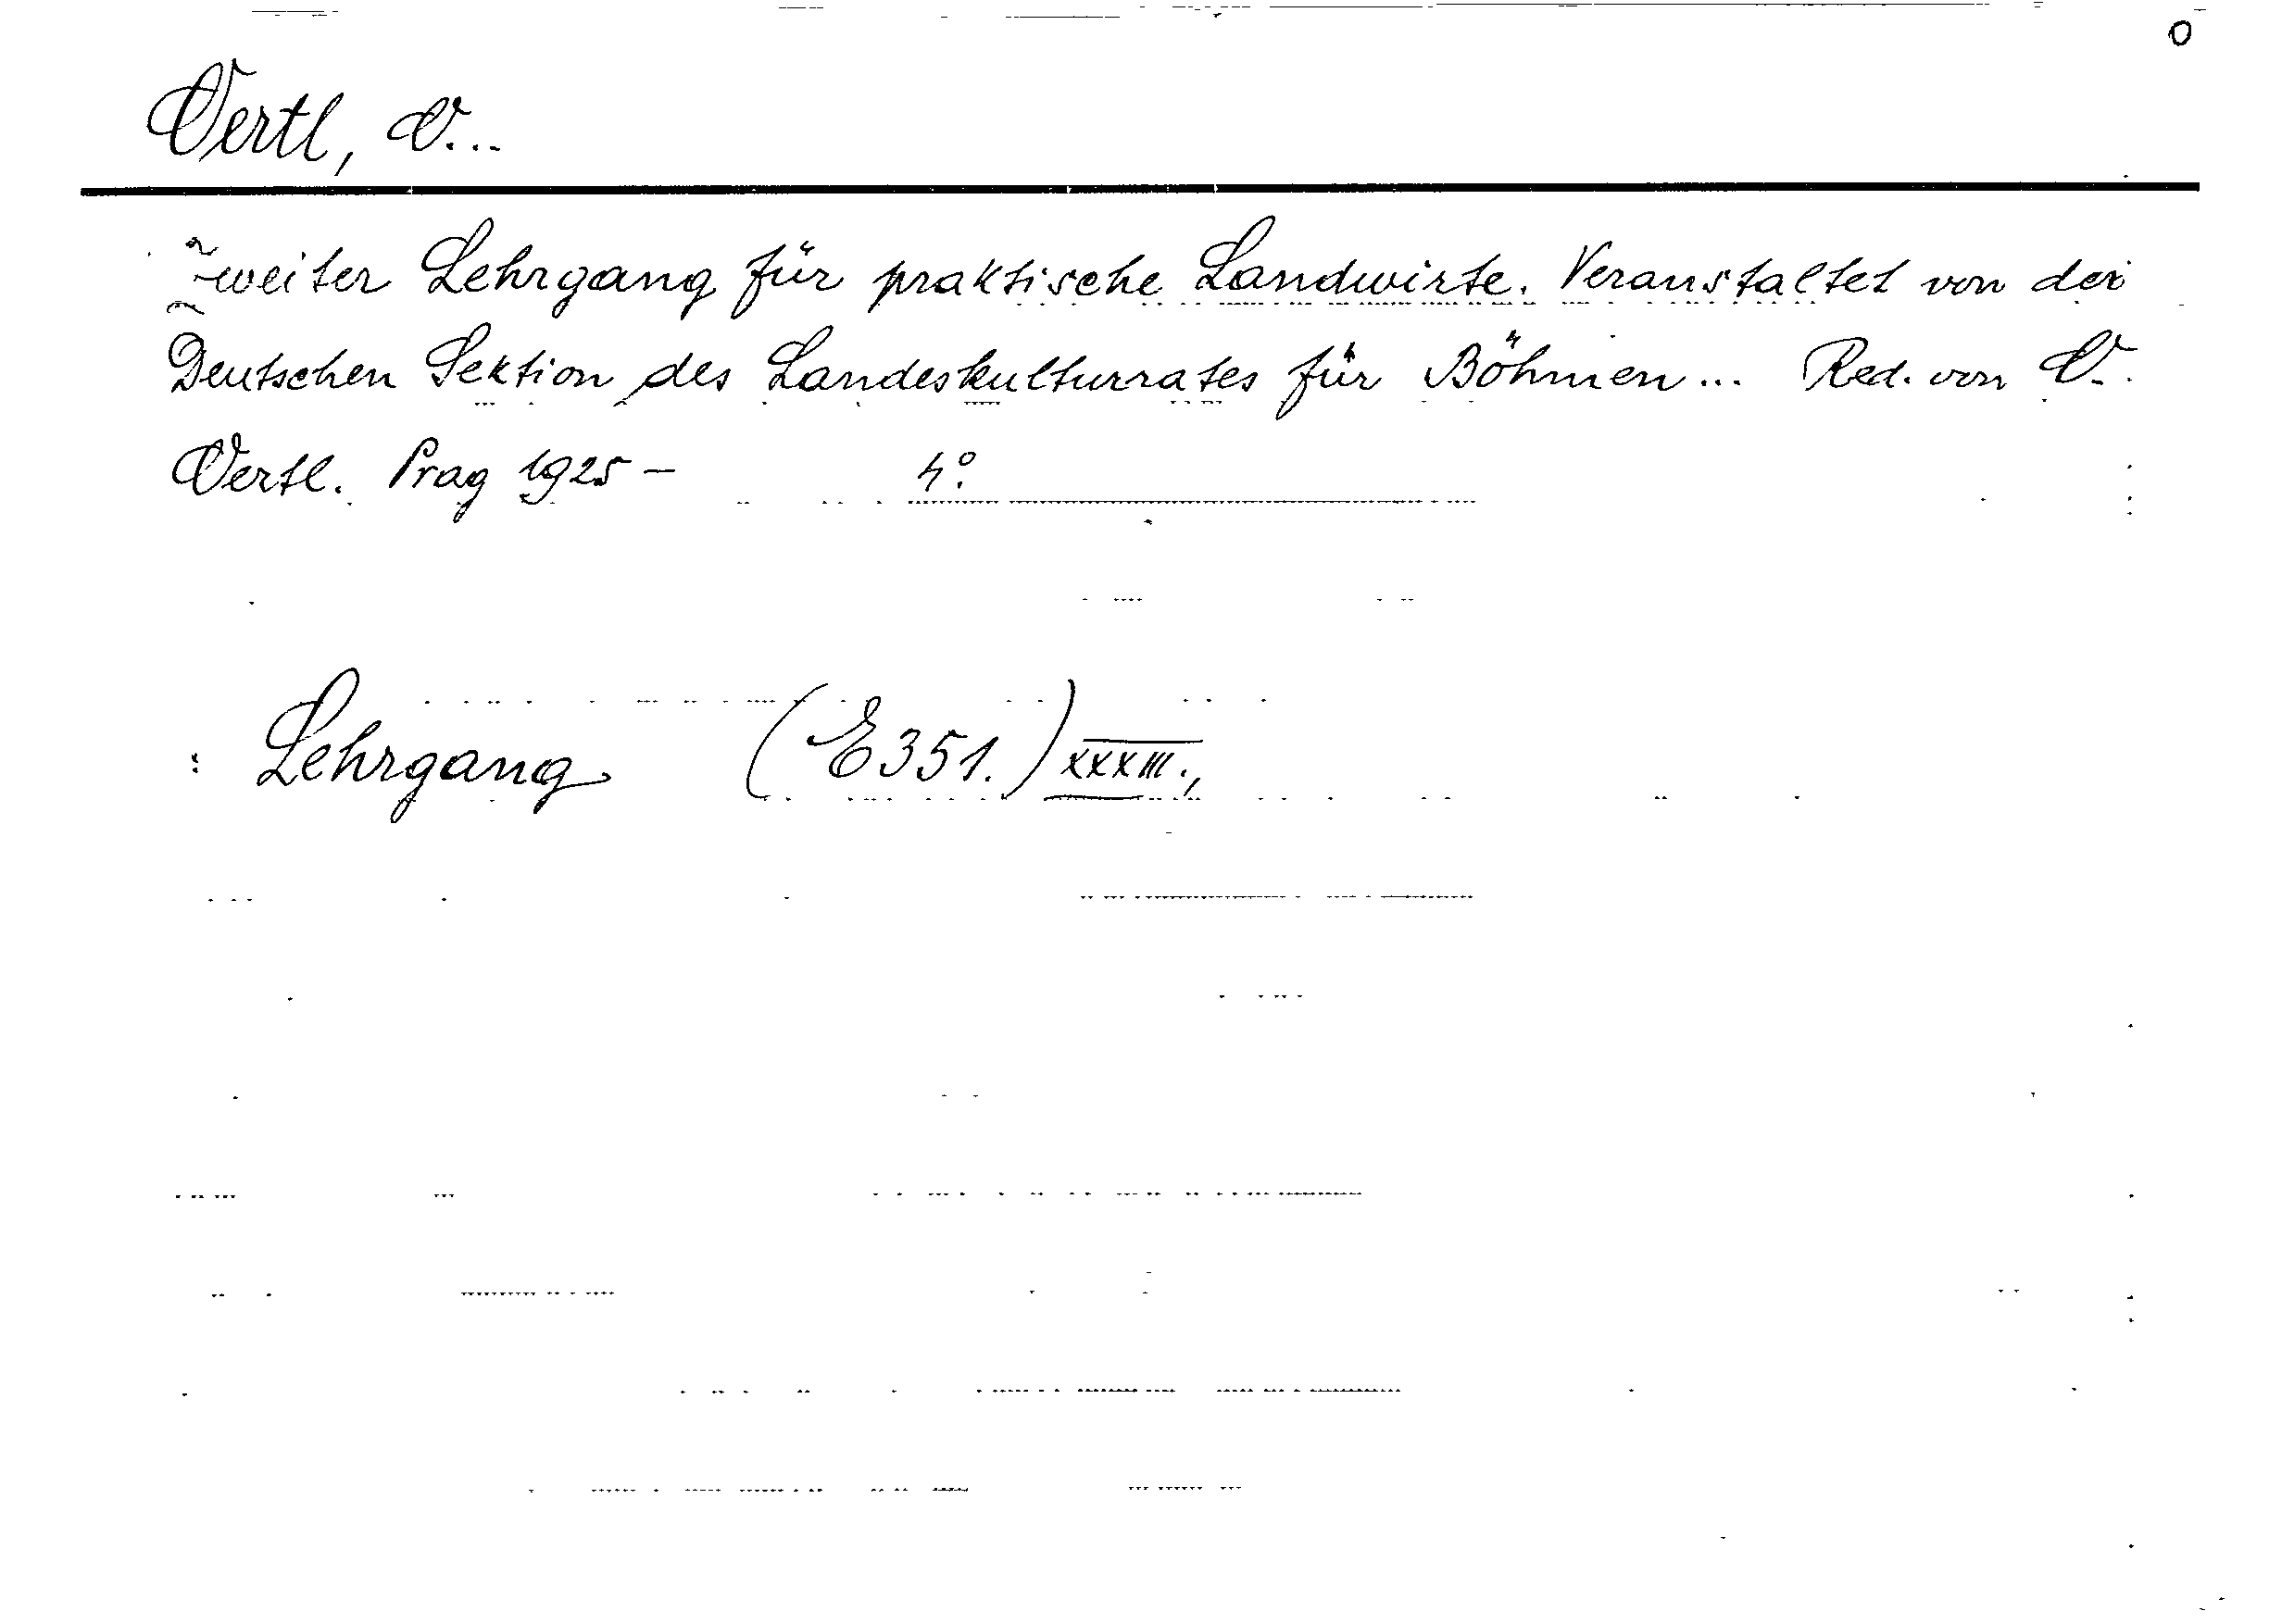 O
Oertl, O...
Zweiter Lehrgang für praktische Landwirte. Veranstaltet von der
Deutschen Sektion des Landeskulturrates für Böhmen... Red. von O..
Oertl. Prag 1925 - 4°.
: Lehrgang (E351.) XXXIII.,